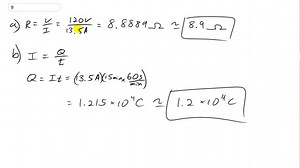 a) R = V/I = 120V/13.5A = 8.8889 Ω ≃ 8.9 Ω
b) I = Q/t
Q = It = (13.5A)(15min × 60s/min)
= 1.215 × 10⁴ C ≃ 1.2 × 10⁴ C